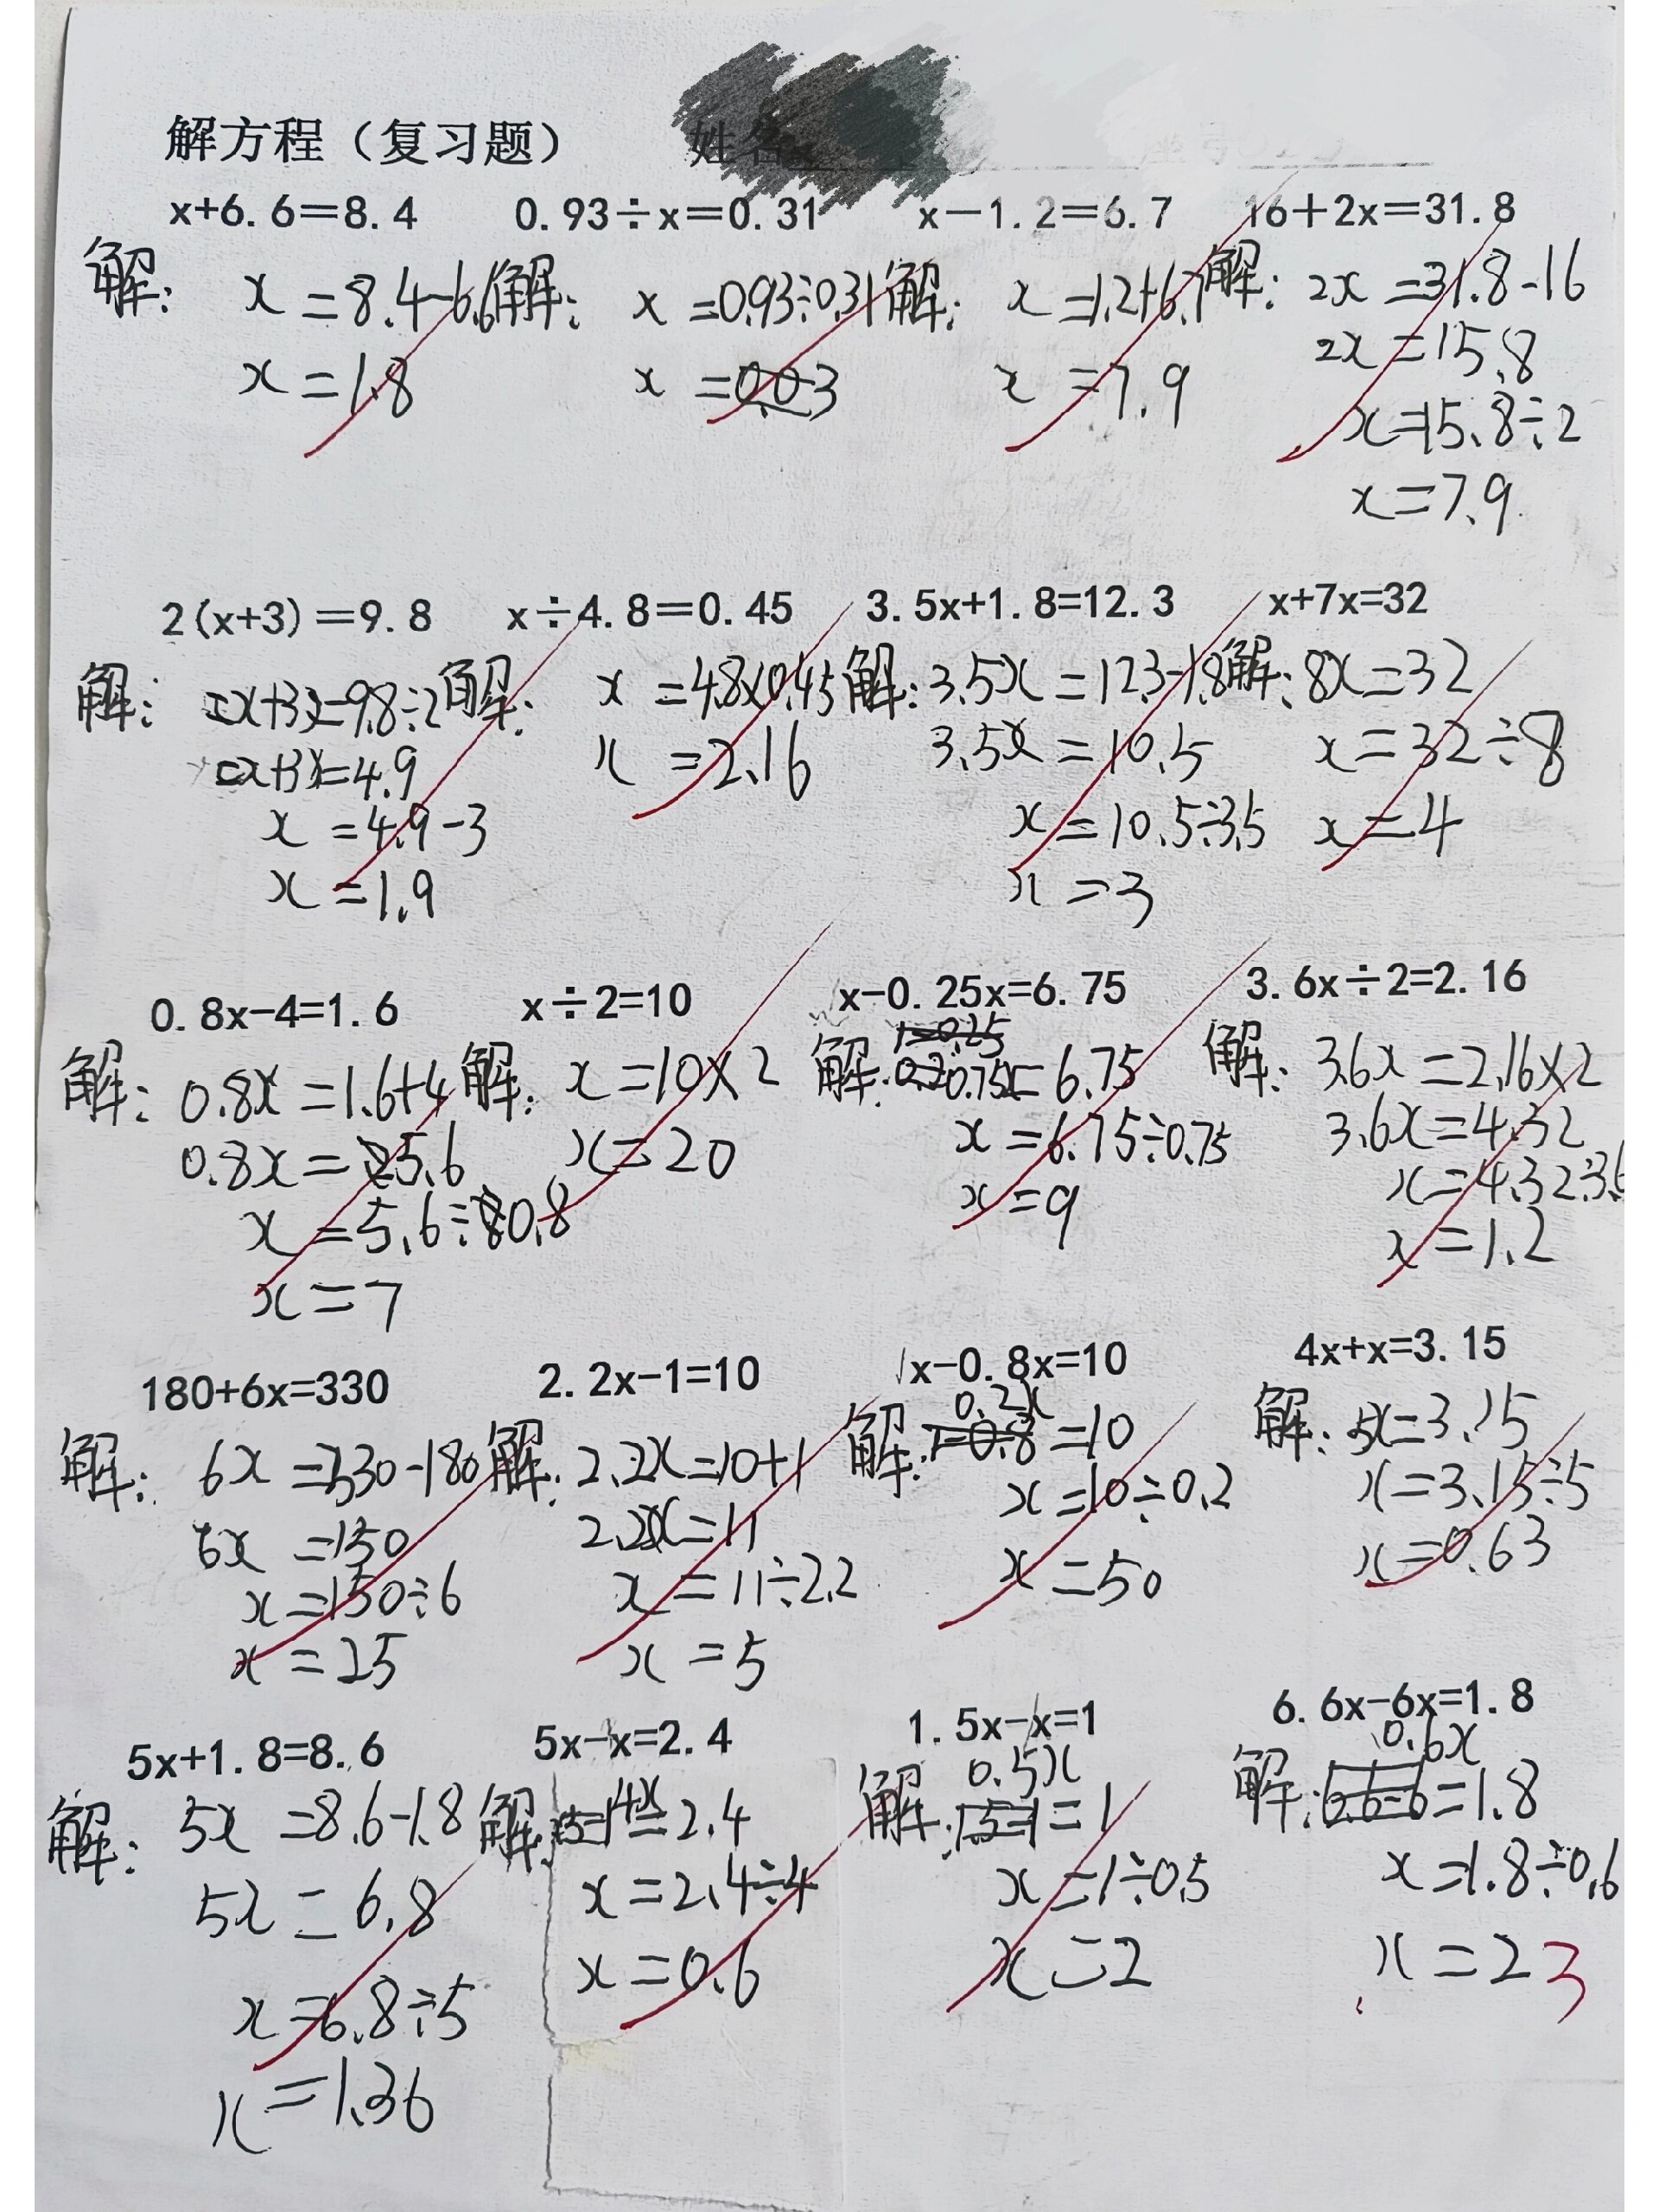 解方程（复习题） 姓名
x+6.6=8.4 0.93÷x=0.31 x-1.2=6.7 16+2x=31.8
解: x=8.4-6.6 解: x=0.93÷0.31 解: x=1.2+6.7 解: 2x=31.8-16
2x=15.8
x=1.8 x=3 x=7.9
x=15.8÷2
x=7.9
2(x+3)=9.8 x÷4.8=0.45 3.5x+1.8=12.3 x+7x=32
解: x+3=9.8÷2 解: x=4.8×0.45 解: 3.5x=12.3-1.8 解: 8x=32
x+3=4.9 x=2.16 3.5x=10.5 x=32÷8
x=4.9-3 x=10.5÷3.5 x=4
x=1.9 x=3
0.8x-4=1.6 x÷2=10 x-0.25x=6.75 3.6x÷2=2.16
解: 0.8x=1.6+4 解: x=10×2 解: 0.75x=6.75 解: 3.6x=2.16×2
0.8x=5.6 x=20 x=6.75÷0.75 3.6x=4.32
x=5.6÷0.8 x=9 x=4.32÷3.6
x=7 x=1.2
180+6x=330 2.2x-1=10 x-0.8x=10 4x+x=3.15
解: 6x=330-180 解: 2.2x=10+1 解: 0.2x=10 解: 5x=3.15
6x=150 2.2x=11 x=10÷0.2 x=3.15÷5
x=150÷6 x=11÷2.2 x=50 x=0.63
x=25 x=5
5x+1.8=8.6 5x-x=2.4 1.5x-x=1 6.6x-6x=1.8
解: 5x=8.6-1.8 解: 4x=2.4 解: 0.5x=1 解: 0.6x=1.8
5x=6.8 x=2.4÷4 x=1÷0.5 x=1.8÷0.6
x=6.8÷5 x=0.6 x=2 x=2 3
x=1.36